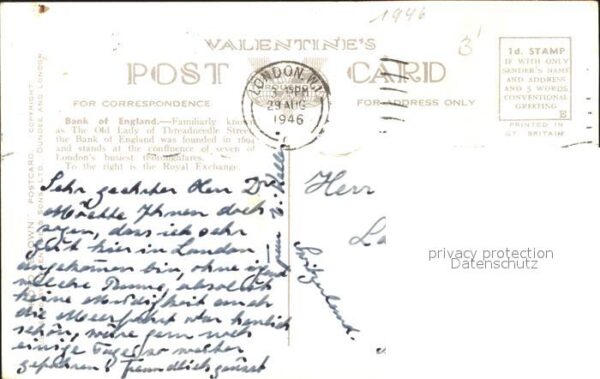 1946
3'
VALENTINE'S
POST CARD
FOR CORRESPONDENCE
FOR ADDRESS ONLY
1d. STAMP
IF WITH ONLY
SENDER'S NAME
AND ADDRESS
AND 5 WORDS
CONVENTIONAL
GREETING
E
PRINTED IN
GT. BRITAIN
LONDON. W.1
29 AUG
1946
Bank of England.—Familiarly known
as The Old Lady of Threadneedle Street
the Bank of England was founded in 1694
and stands at the confluence of seven of
London's busiest thoroughfares.
To the right is the Royal Exchange.
Sehr geehrter Herr Dr
Möchte Ihnen doch
sagen, dass ich sehr
gut hier in London
angekommen bin, ohne
welche absolut
keine Müdigkeit auch
die Meerfahrt war herrlich
schön, wäre gern noch
einige Tage so weiter
gefahren! Freundlich grüsst
Herr
Switzerland.
privacy protection
Datenschutz